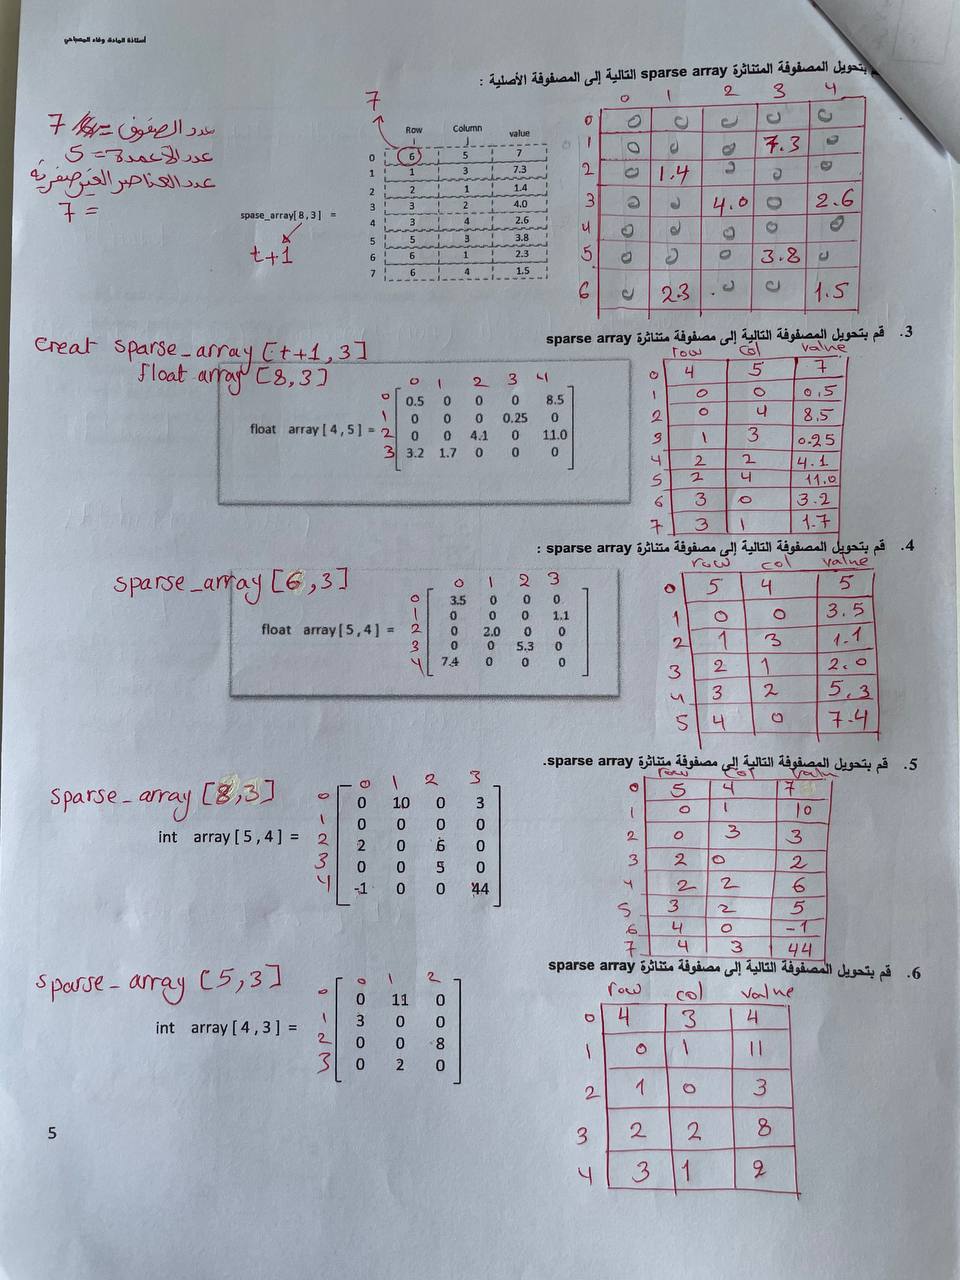 أستاذة المادة: وفاء المصباحي
قم بتحويل المصفوفة المتناثرة sparse array التالية إلى المصفوفة الأصلية :
7
عدد الصفوف = 7
عدد الأعمدة = 5
عدد العناصر الغير صفرية
= 7
Row Column value
0 6 5 7
1 1 3 7.3
2 2 1 1.4
3 3 2 4.0
4 3 4 2.6
5 5 3 3.8
6 6 1 2.3
7 6 4 1.5
spase_array[8,3] =
t+1
0 1 2 3 4
0 0 0 0 0 0
1 0 0 0 7.3 0
2 0 1.4 0 0 0
3 0 0 4.0 0 2.6
4 0 0 0 0 0
5 0 0 0 3.8 0
6 0 2.3 0 0 1.5
3. قم بتحويل المصفوفة التالية إلى مصفوفة متناثرة sparse array
Creat sparse_array [t+1,3]
float array [8,3]
float array[4,5] =
0 1 2 3 4
0 0.5 0 0 0 8.5
1 0 0 0 0.25 0
2 0 0 4.1 0 11.0
3 3.2 1.7 0 0 0
row col value
0 4 5 7
1 0 0 0.5
2 0 4 8.5
3 1 3 0.25
4 2 2 4.1
5 2 4 11.0
6 3 0 3.2
7 3 1 1.7
4. قم بتحويل المصفوفة التالية إلى مصفوفة متناثرة sparse array :
sparse_array [6,3]
float array[5,4] =
0 1 2 3
0 3.5 0 0 0
1 0 0 0 1.1
2 0 2.0 0 0
3 0 0 5.3 0
4 7.4 0 0 0
row col value
0 5 4 5
1 0 0 3.5
2 1 3 1.1
3 2 1 2.0
4 3 2 5.3
5 4 0 7.4
5. قم بتحويل المصفوفة التالية إلى مصفوفة متناثرة sparse array.
sparse_array [8,3]
int array[5,4] =
0 1 2 3
0 0 10 0 3
1 0 0 0 0
2 2 0 6 0
3 0 0 5 0
4 -1 0 0 44
row col value
0 5 4 7
1 0 1 10
2 0 3 3
3 2 0 2
4 2 2 6
5 3 2 5
6 4 0 -1
7 4 3 44
6. قم بتحويل المصفوفة التالية إلى مصفوفة متناثرة sparse array
sparse_array [5,3]
int array[4,3] =
0 1 2
0 0 11 0
1 3 0 0
2 0 0 8
3 0 2 0
row col value
0 4 3 4
1 0 1 11
2 1 0 3
3 2 2 8
4 3 1 2
5